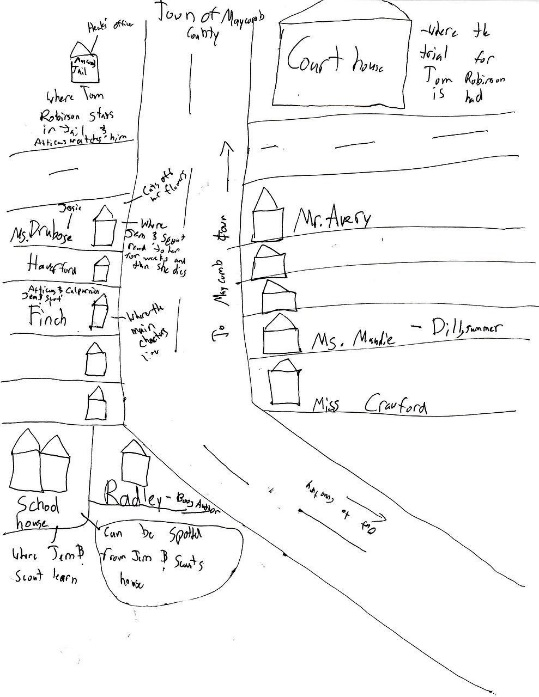 Town of Maycomb
County
Heck's office
Maycomb
Jail
where Tom
Robinson stays
in Jail &
Atticus watches him
Court house
-where the
trial for
Tom Robinson
is had
Cuts off
her flowers
Ms. Dubose
- Where
Jem & Scout
read to her
for weeks and
then she dies
Haverford
Atticus & Calpurnia
Jem & Scout
Finch
- Where the
main
live
To Maycomb Town
Mr. Avery
Ms. Maudie - Dill, summer
Miss Crawford
School
house
where Jem &
Scout learn
Radley - Boo, Arthur
can be spotted
from Jem & Scouts
house
Out to country